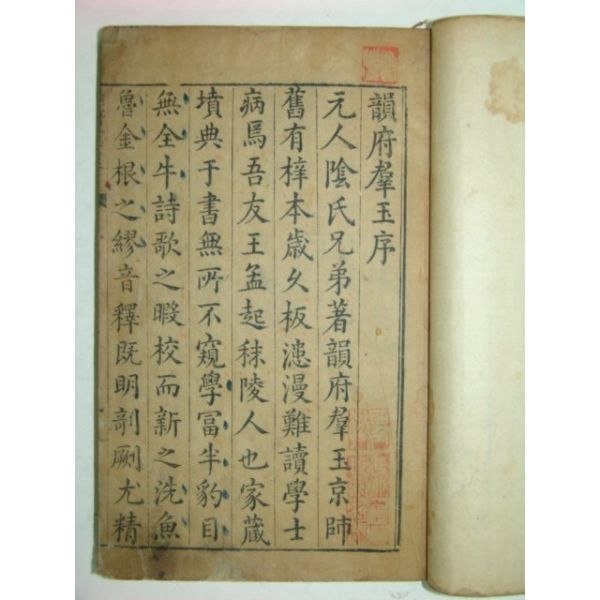 韻府羣玉序
元人陰氏兄弟著韻府羣玉京師
舊有梓本歲久板漶漫難讀學士
病焉吾友王孟起秣陵人也家蔵
墳典于書無所不窺學冨半豹目
無全牛詩歌之暇校而新之洗魚
魯金根之繆音釋既明剞劂尤精